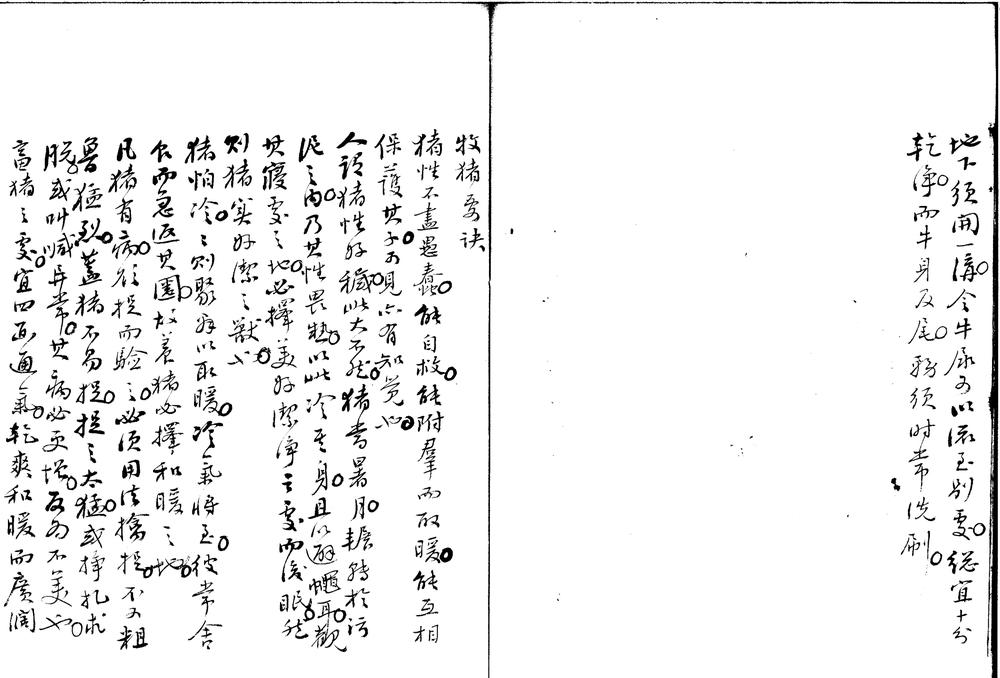 地下須開一溝○令牛尿可以流至別處○總宜十分
乾淨○而牛身及尾○務須时常洗刷○
牧猪要诀
猪性不盡愚蠢○能自救○能附羣而取暖○能互相
保護其子○可見亦有知觉也○
人謂猪性好穢○此大不然○猪當暑月○輾转於污
泥之内○乃其性畏熱○以此冷其身○且以避蠅耳○觀
其寢處之地○必擇美好潔净之處而後眠○然
则猪实好潔之獸也○
猪怕冷○冷则聚群以取暖○冷氣将至○彼常舍
食而急返其圈○故養猪必擇和暖之地○
凡猪有病○欲捉而驗之○必须用法擒捉○不可粗
魯猛烈○蓋猪不易捉○捉之太猛○或掙扎求
脱○或叫喊异常○其病必更增○反为不美也○
畜猪之處○宜四面通氣○乾爽和暖而廣濶